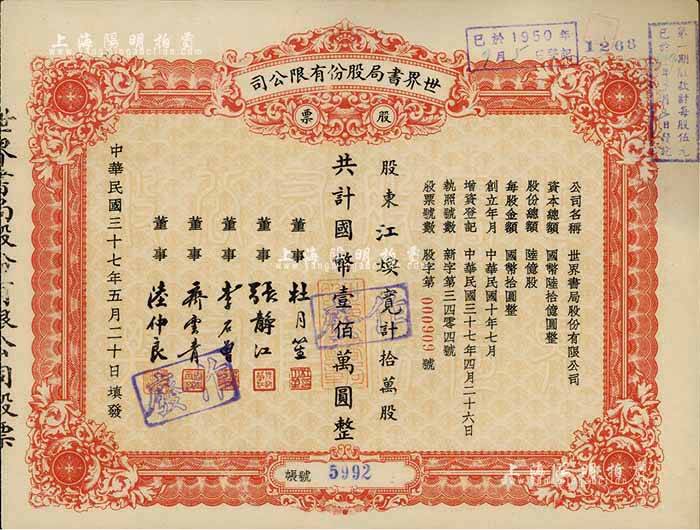 上海陽明拍賣
世界書局股份有限公司
股票
已於1950年
1268
第一期
公司名稱 世界書局股份有限公司
資本總額 國幣陸拾億圓整
股份總額 陸億股
每股金額 國幣拾圓整
創立年月 中華民國十年七月
增資登記 中華民國三十七年四月二十六日
執照號數 新字第三四零四號
股票號數 股字第 號
股東 江 寬計拾萬股
共計國幣壹佰萬圓整
董事 杜月笙
董事 張靜江
董事 李石曾
董事 齊雲青
董事 陸仲良
中華民國三十七年五月二十日填發
作廢
作廢
帳號 5992
世界書局股份有限公司股票
上海陽明拍賣